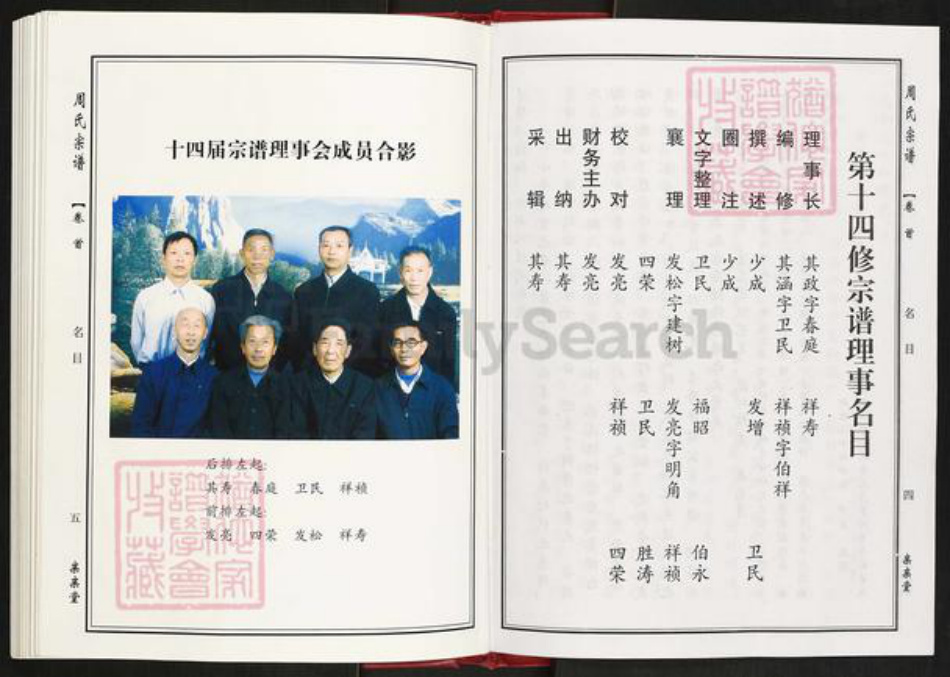 周氏宗谱
【卷首
名目
四
第十四修宗谱理事名目
理事长 其政字春庭 祥寿
编修 其涵字卫民 祥祯字伯祥
撰述 少成 发增 卫民
圈注 少成
文字整理 卫民 福昭 伯永
襄理 发松字建树 发亮字明角 祥祯
四荣 卫民 胜涛
校对 发亮 祥祯 四荣
财务主办 发亮
出纳 其寿
采辑 其寿
十四届宗谱理事会成员合影
后排左起:
其寿 春庭 卫民 祥祯
前排左起:
发亮 四荣 发松 祥寿
周氏宗谱
【卷首
名目
五
FamilySearch